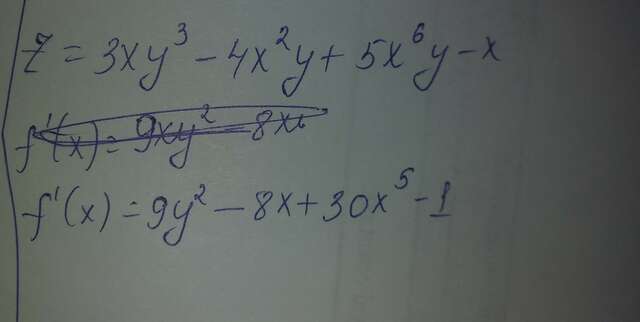 Z = 3xy³ - 4x²y + 5x⁶y - x
f'(x) = 9xy² - 8x
f'(x) = 9y² - 8x + 30x⁵ - 1